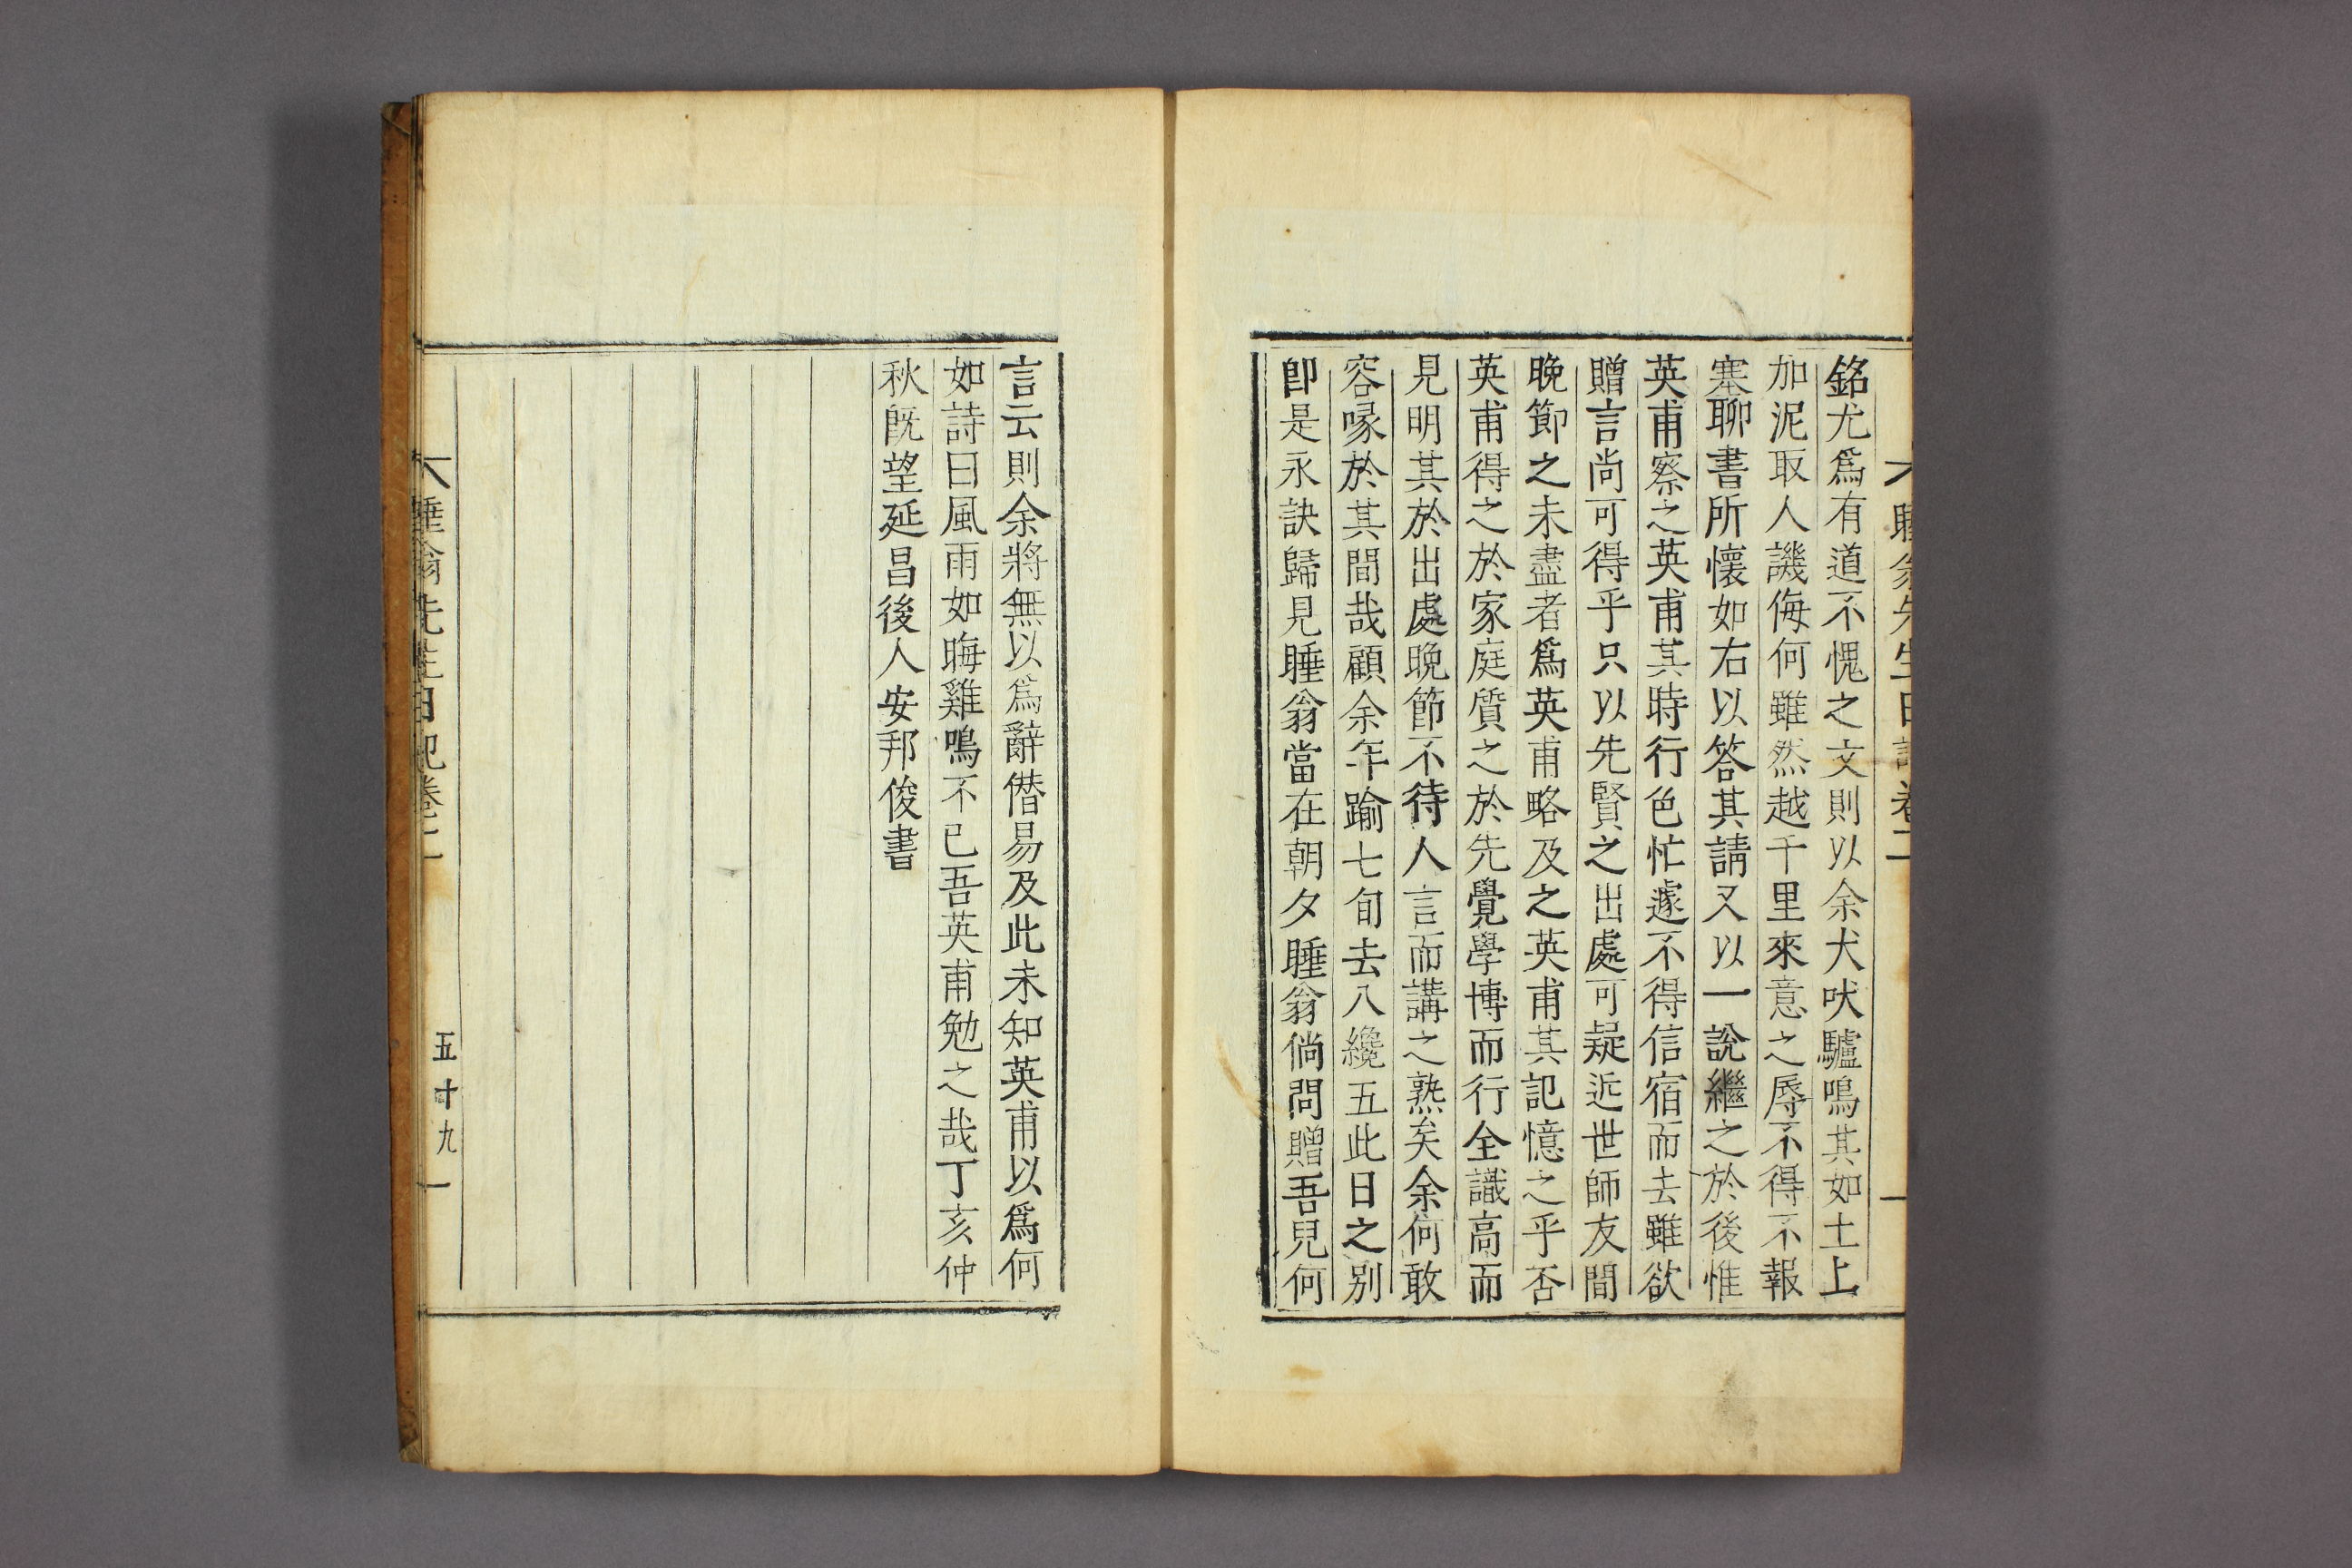 睡翁先生日記卷二
銘尤爲有道不愧之文則以余犬吠驢鳴其如土上
加泥取人譏侮何雖然越千里來意之辱不得不報
塞聊書所懷如右以答其請又以一說繼之於後惟
英甫察之英甫其時行色忙遽不得信宿而去雖欲
贈言尚可得乎只以先賢之出處可疑近世師友間
晚節之未盡者爲英甫略及之英甫其記憶之乎否
英甫得之於家庭質之於先覺學博而行全識高而
見明其於出處晚節不待人言而講之熟矣余何敢
容喙於其間哉顧余年踰七旬去八纔五此日之別
卽是永訣歸見睡翁當在朝夕睡翁倘問贈吾兒何
言云則余將無以爲辭僭易及此未知英甫以爲何
如詩曰風雨如晦雞鳴不已吾英甫勉之哉丁亥仲
秋旣望延昌後人安邦俊書
睡翁先生日記卷二
五十九